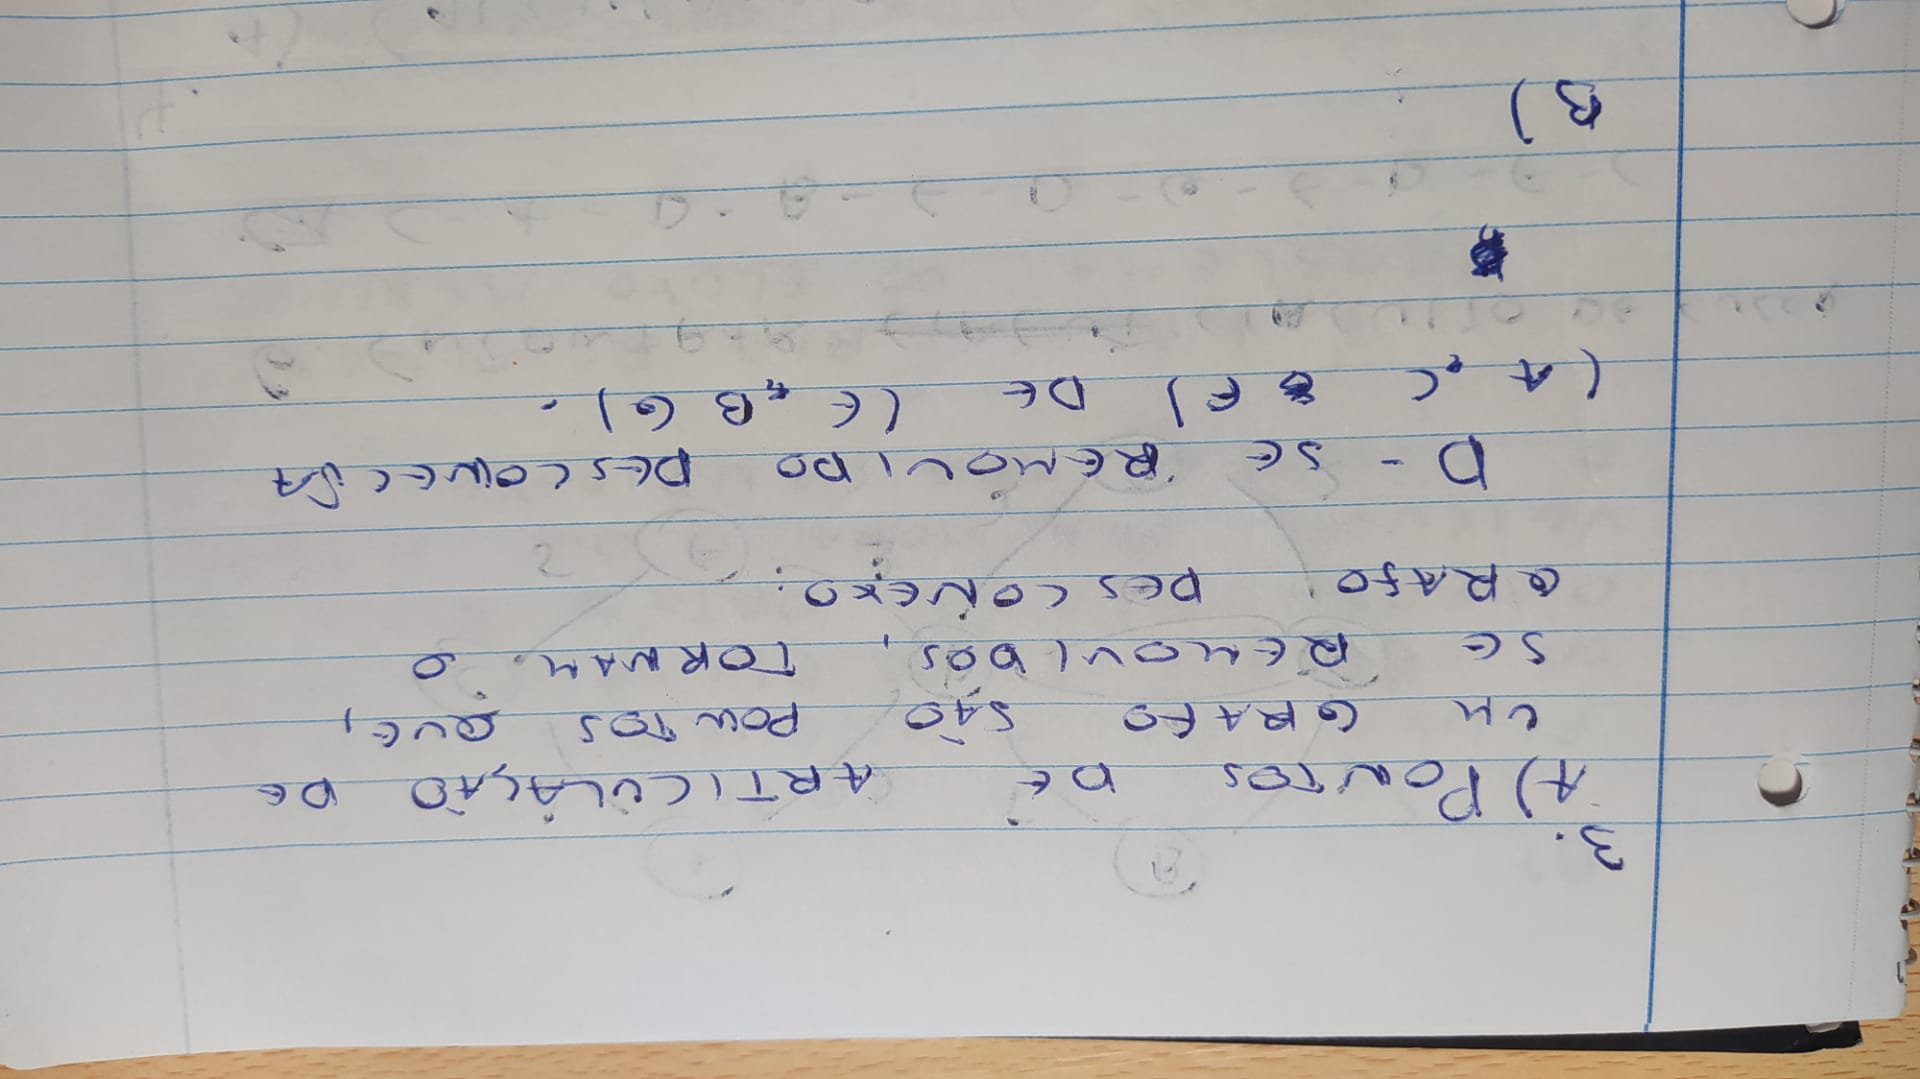 3.
A) PONTOS DE ARTICULAÇÃO DE
UM GRAFO SÃO PONTOS QUE,
SE REMOVIDOS, TORNAM O
GRAFO DESCONEXO.
D - SE REMOVIDO DESCONECTA
(A, C E F) DE (E, B G).
B)